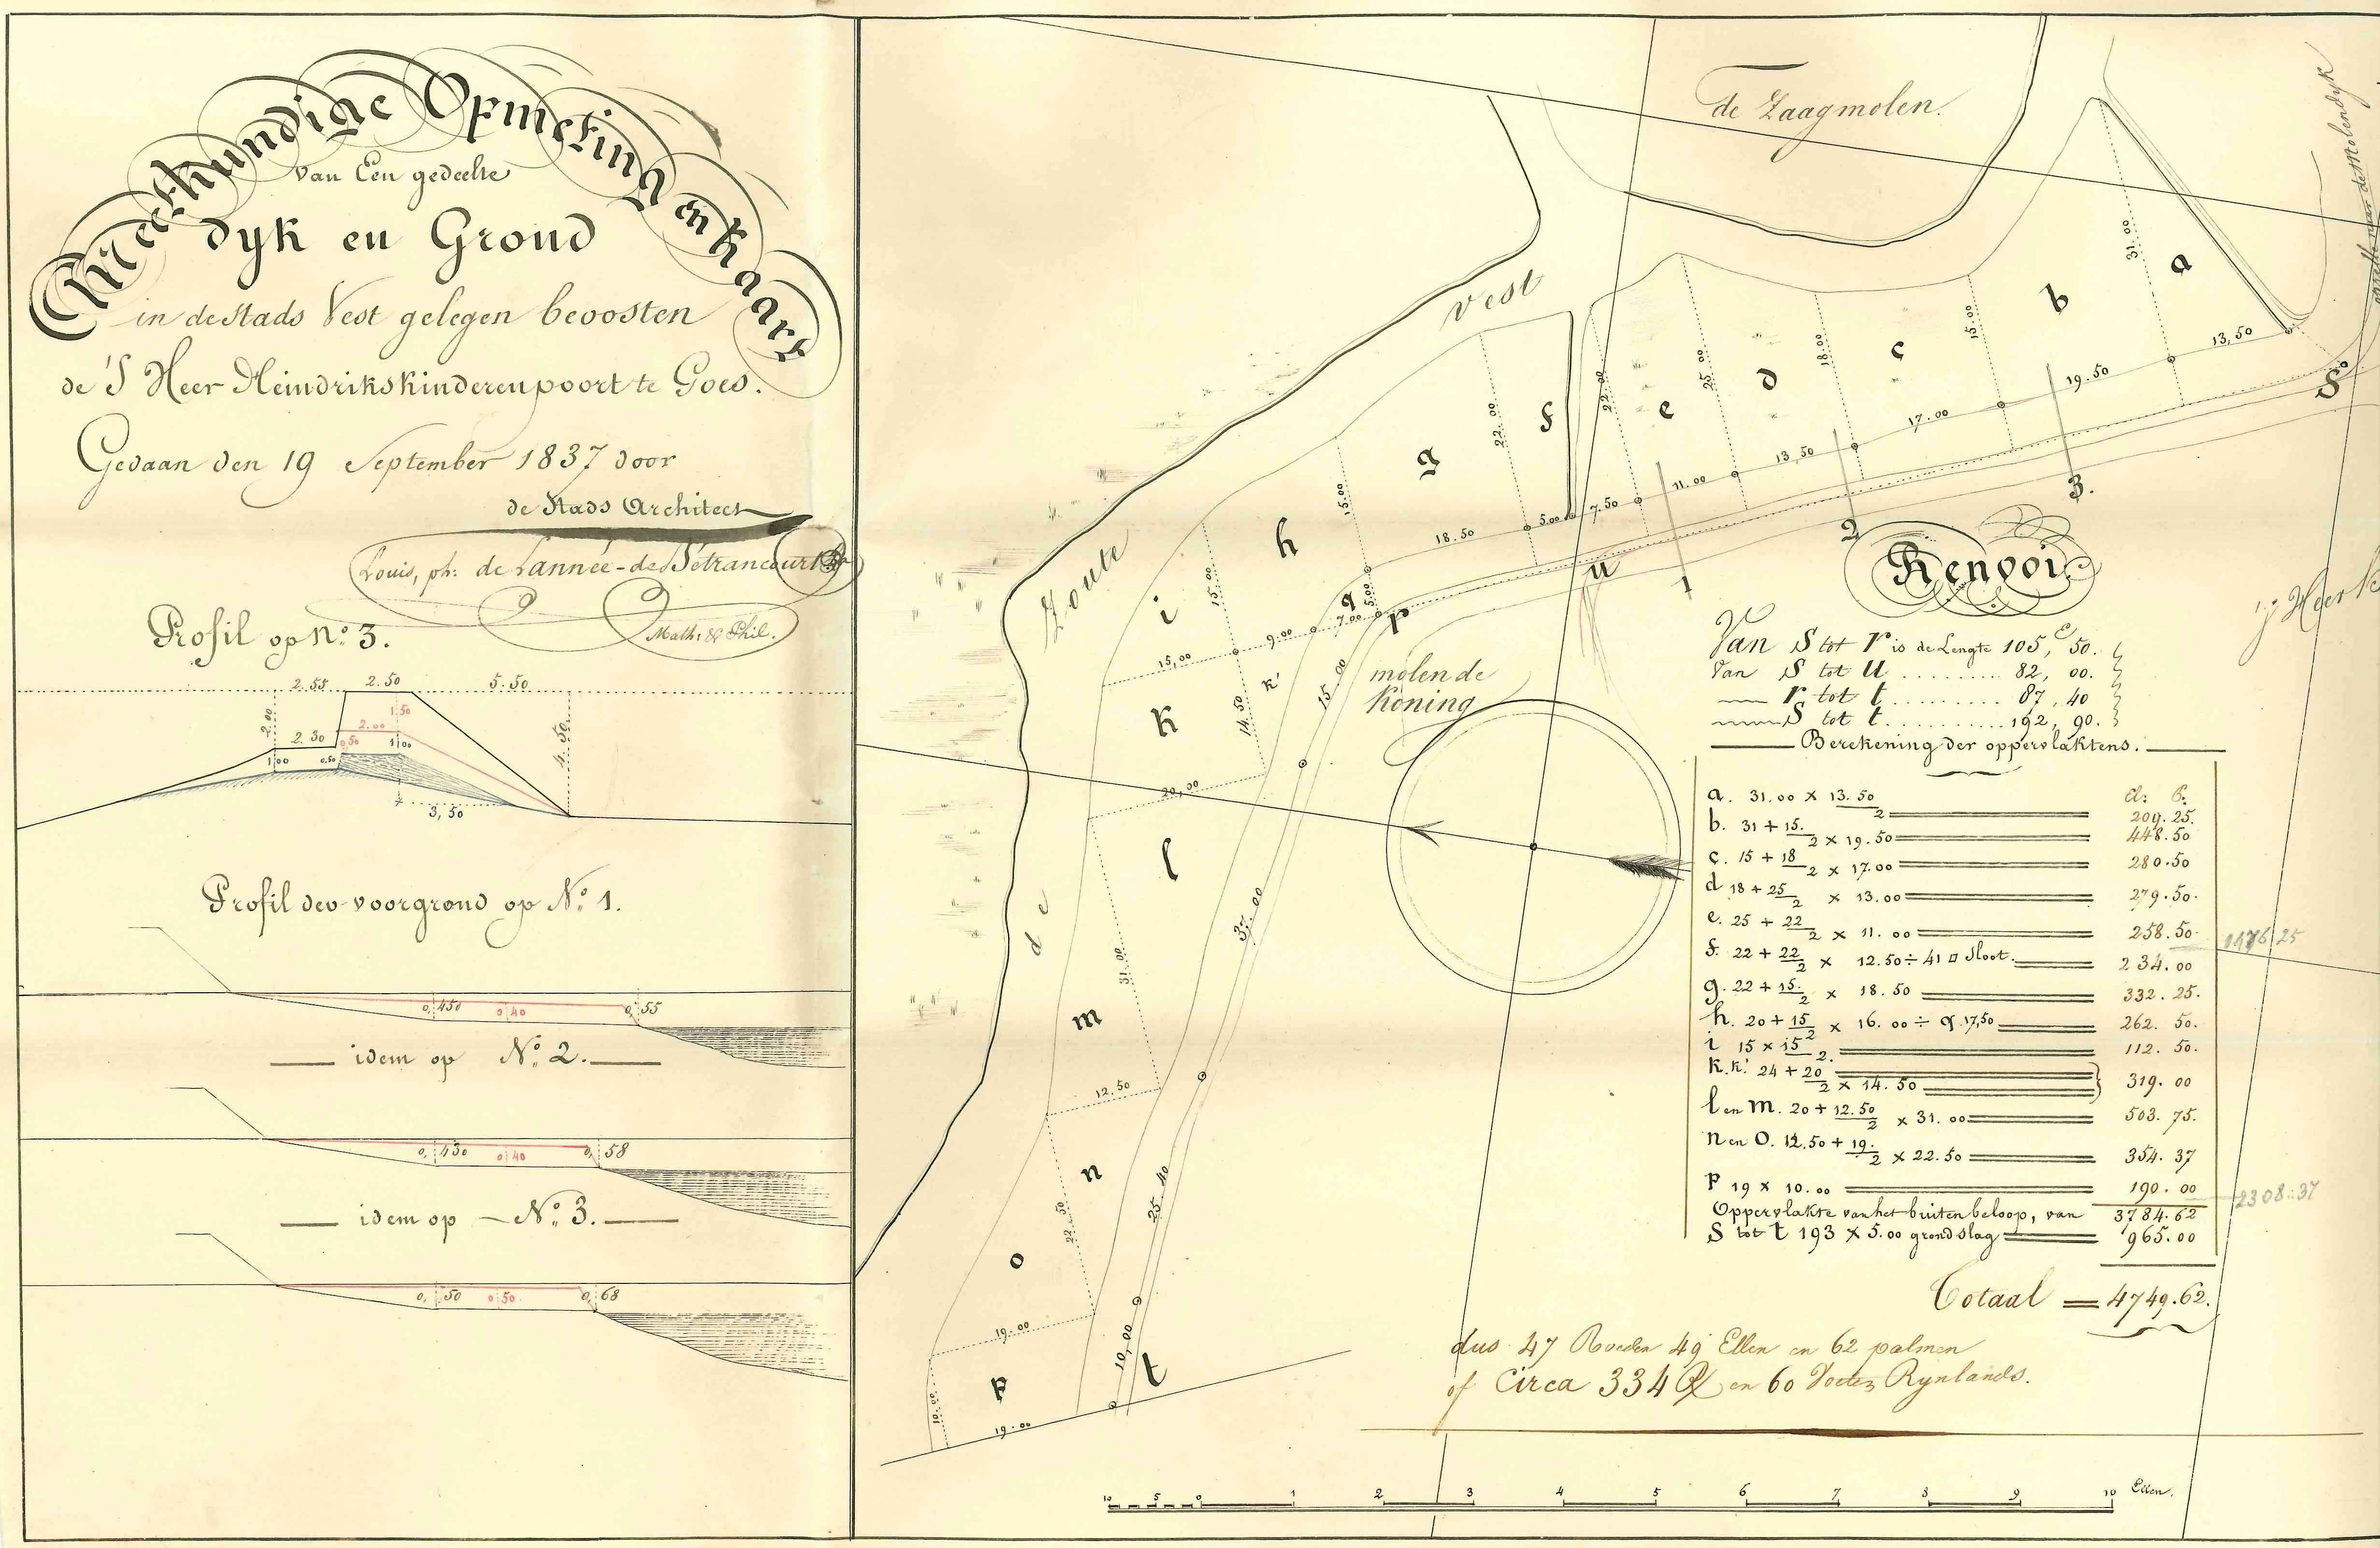 Meetkundige Opmeting en Kaart
Van Een gedeelte
dyk en Grond
in de Stads Vest gelegen beoosten
de 'S Heer Heindrikskinderenpoort te Goes.
Gedaan den 19 September 1837 door
de Stads Architect
Louis, ph: de Lannée-de Bétrancourt
Math: & Phil.
Profil op No. 3.
2.55 2.50 5.50
2.00 1.50 4.50
2.00
2.30 0.50 1,00
1,00 0.50
3,50
Profil der voorgrond op No. 1.
0,450 0,40 0,55
idem op No. 2.
0,430 0,40 0,58
idem op No. 3.
0,50 0,50 0,68
de Zaagmolen.
de Zoute Vest
molen de
Koning
a b c d e f g h i k k' l m n o p q
r S t u
1 2 3.
31.00 13,50 19.50 15.00 17.00 18.00 13,50 25.00 11.00 22.00 7.50 5.00 22.00 18.50 15.00 5.00 7.00 9.00 15.00 15,00 14.50 15,00 20,00 37.00 31.00 12.50 25.40 22.50 19.00 10,00 10.00 19.00
Renvoi
Van S tot r is de Lengte 105, 50.
Van S tot U ......... 82, 00.
r tot t ......... 87, 40
S tot t ......... 192, 90.
Berekening der oppervlaktens.
a. 31.00 x 13.50/2 209.25.
b. 31 + 15./2 x 19.50 448.50
c. 15 + 18/2 x 17.00 280.50
d 18 + 25/2 x 13.00 279.50.
e. 25 + 22/2 x 11.00 258.50.
1476.25
f. 22 + 22/2 x 12.50 ÷ 41 □ Sloot. 234.00
g. 22 + 15./2 x 18.50 332.25.
h. 20 + 15/2 x 16.00 ÷ q. 17,50 262.50.
i 15 x 15/2. 112.50.
k.k'. 24 + 20/2 x 14.50 319.00
l en m. 20 + 12.50/2 x 31.00 503.75.
n en O. 12.50 + 19./2 x 22.50 354.37
P 19 x 10.00 190.00
2308.37
Oppervlakte van het buitenbeloop, van 3784.62
S tot t 193 x 5.00 grondslag 965.00
Totaal = 4749.62.
dus 47 Roeden 49 Ellen en 62 palmen
of Circa 334 R en 60 Voeten Rynlands.
10 5 0 1 2 3 4 5 6 7 8 9 10 Ellen.